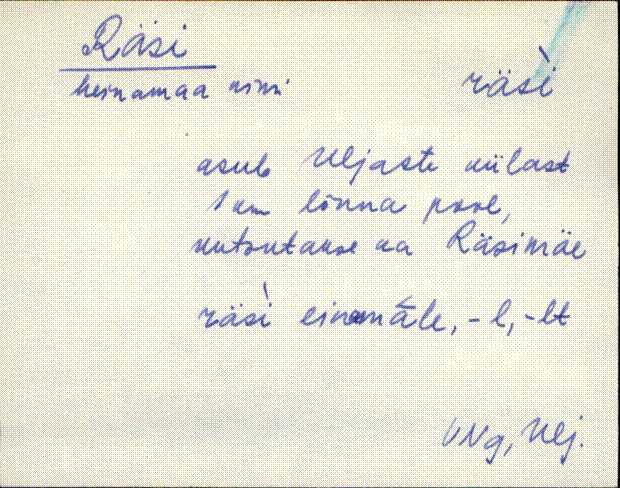 Räsi
heinamaa nimi räsì
asub Uljaste külast
1 km lõuna pool,
kutsutakse ka Räsimäe
räsì einamāle, -l, -lt
VNg, Ulj.